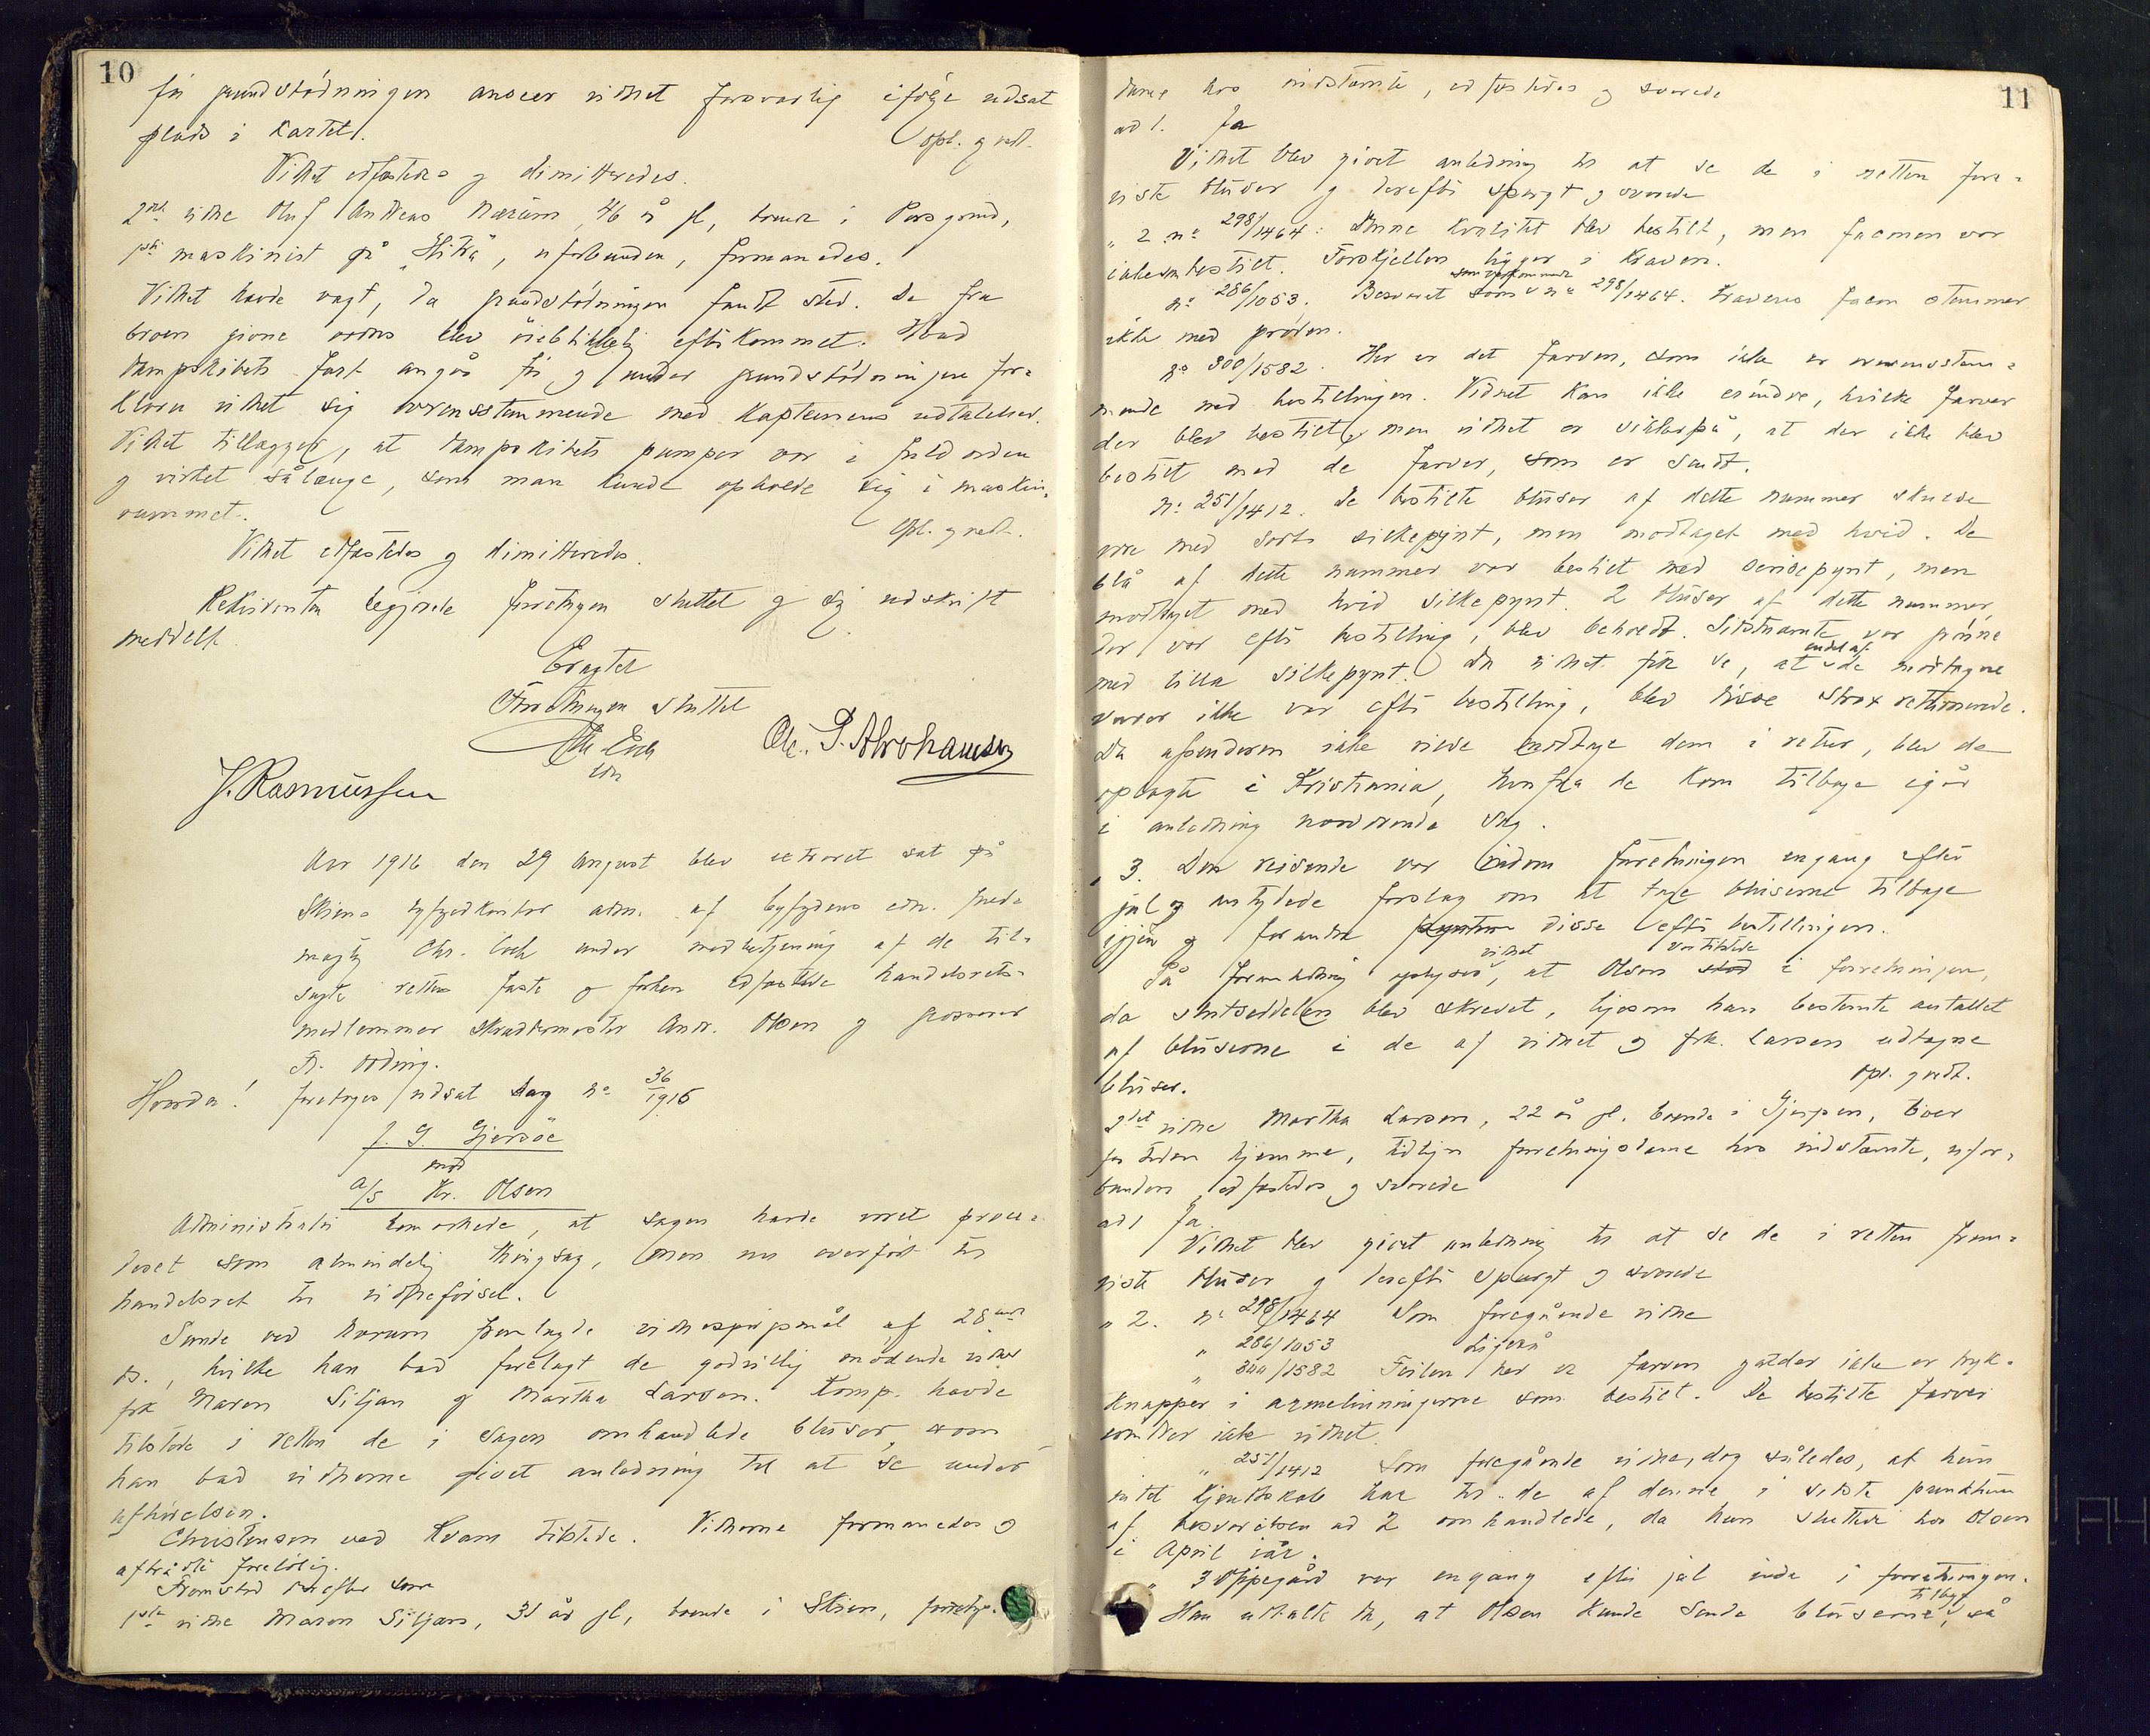 10
før grundstødningen anseer vidnet forsvarlig ifølge udsat
plads i kartet.
Opl. g vedt.
Vidnet edfæstedes g dimitteredes.
2det vidne Oluf Andreas Nærum, 46 år gl, boende i Porsgrund,
1ste maskinist på "Hitra", uforbunden, formanedes.
Vidnet havde vagt, da grundstødningen fandt sted. De fra
broen givne ordres blev øieblikkelig efterkommet. Hvad
dampskibets fart angår før g under grundstødningen for-
klarer vidnet sig overensstemmende med kapteinens udtalelser.
Vidnet tillægger, at dampskibets pumper var i fuld orden
g virket sålænge, som man kunde opholde sig i maskin-
rummet.
Opl. g vedt.
Vidnet edfæstedes g dimitteredes.
Rekvirenten begjærede forretningen sluttet g sig udskrift
meddelt.
Eragtet
Forretningen sluttet
Chr. Loch
edn
Ole. P. Abrahamsen
J. Rasmussen
Aar 1916 den 29 August blev extraret sat på
Skiens byfogedkontor adm. af byfogdens edsv. fuld-
mægtig Chr. Loch under medbetjening af de til-
sagte rettens faste g forhen edfæstede handelsrets-
medlemmer skræddermester Andr. Olsen g grosserer
Fr. Ording.
Hvorda! foretoges udsat sag no 36/1916
f. G. Gjersøe
mod
A/S Kr. Olsen
Administrator bemærkede, at sagen havde været proce-
deret som almindelig thingsag, men nu overført til
handelsret til vidneførsel.
Sunde ved Aarum fremlagde vidnespørgsmål af 28de
ds., hvilke han bad forelagt de godvillig mødende vidner
frk Maren Siljan g Martha Larsen. Komp. havde
tilstede i retten de i sagen omhandlede bluser, som
han bad vidnerne givet anledning til at se under
afhørelsen.
Christensen ved Kvam tilstede. Vidnerne formanedes g
aftrådte foreløbig.
Fremstod derefter som
1ste vidne Maren Siljan, 31 år gl, boende i Skien,
11
dame hos indstævnte, edfæstedes g svarede
ad 1. Ja
Vidnet blev givet anledning til at se de i retten frem-
viste bluser g derefter spurgt g svarede
" 2 no 298/1464: Denne kvalitet blev bestilt, men facmen var
ikke som bestilt. Forskjellen ligger i kraven.
no 286/1053. Besvaret som vedkommende no 298/1464. Kravens facon stemmer
ikke med prøven.
no 300/1582. Her er det farven, som ikke er overensstem-
mende med bestillingen. Vidnet kan ikke erindre, hvilke farver
der blev bestilt, men vidnet er sikker på, at der ikke blev
bestilt med de farver, som er sendt.
no 251/1412. De bestilte bluser af dette nummer skulde
være med sort silkepynt, men modtaget med hvid. De
blå af dette nummer var bestilt med beisepynt, men
modtaget med hvid silkepynt. 2 bluser af dette nummer,
der var efter bestilling, blev beholdt. Sidstnævnte var grønne
med lilla silkepynt. Da vidnet fik se, at endel af de modtagne
varer ikke var efter bestilling, blev disse strax returnerede.
Da afsenderen ikke vilde modtage dem i retur, blev de
oplagte i Kristiania, hvorfra de kom tilbage igår
i anledning nærværende sag.
" 3. Den reisende var indom forretningen engang efter
jul g antydede forslag om at tage bluserne tilbage
igjen g forandre disse efter bestillingen.
På foranledning oplyser vidnet, at Olsen var tilstede i forretningen,
da slutseddelen blev skrevet, ligesom han bestemte antallet
af bluserne i de af vidnet g frk. Larsen udtagne
bluser.
Opl. g vedt.
2det vidne Martha Larsen, 22 år gl. boende i Gjerpen, er
for tiden hjemme, tidligere forretningsdame hos indstævnte, ufor-
bunden, edfæstedes g svarede
ad 1 Ja.
Vidnet blev givet anledning til at se de i retten frem-
viste bluser g derefter spurgt g svarede
" 2. no 298/1464 Som foregående vidne
" 286/1053 Ligeså
" 300/1582 Feilen her er farven
knapper i ærmelinningerne som bestilt. De bestilte farver
erindrer ikke vidnet.
" 251/1412 Som foregående vidne, dog således, at hun
intet kjendskab har til de af denne i sidste punktum
af besvarelsen ad 2 omhandlede, da hun sluttede hos Olsen
i April iår.
" 3 Oppegård var engang efter jul inde i forretningen.
Han udtalte da, at Olsen kunde sende bluserne tilbage, så